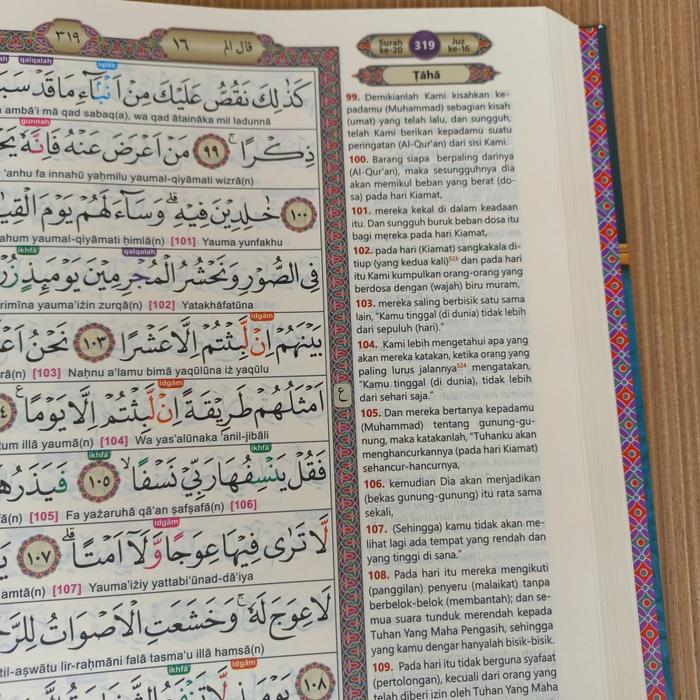 ٣١٩
١٦
قال الم
Surah ke-20
319
Juz ke-16
Ṭāhā
qalqalah
iqlāb
كَذٰلِكَ نَقُصُّ عَلَيْكَ مِنْ اَنْۢبَاۤءِ مَا قَدْ
ambā'i mā qad sabaq(a), wa qad ātaināka mil ladunnā
gunnah
ذِكْرًا ۚ ٩٩ مَنْ اَعْرَضَ عَنْهُ فَاِنَّهٗ
'anhu fa innahū yaḥmilu yaumal-qiyāmati wizrā(n)
١٠٠ خٰلِدِيْنَ فِيْهِ ۗ وَسَاۤءَ لَهُمْ يَوْمَ
ahum yaumal-qiyāmati ḥimlā(n) [101] Yauma yunfakhu
ikhfā
qalqalah
فِى الصُّوْرِ وَنَحْشُرُ الْمُجْرِمِيْنَ يَوْمَىِٕذٍ
rimīna yauma'iżin zurqā(n) [102] Yatakhāfatūna
idgām
بَيْنَهُمْ اِنْ لَّبِثْتُمْ اِلَّا عَشْرًا ١٠٣ نَحْنُ
rā(n) [103] Naḥnu a'lamu bimā yaqūlūna iż yaqūlu
idgām
اَمْثَلُهُمْ طَرِيْقَةً اِنْ لَّبِثْتُمْ اِلَّا يَوْمًا ࣖ
ع
tum illā yaumā(n) [104] Wa yas'alūnaka 'anil-jibāli
ikhfā
ikhfā
فَقُلْ يَنْسِفُهَا رَبِّيْ نَسْفًا ۙ ١٠٥ فَيَذَرُهَا
ā(n) [105] Fa yażaruhā qā'an ṣafṣafā(n) [106]
idgām
لَّا تَرٰى فِيْهَا عِوَجًا وَّلَآ اَمْتًا ۗ ١٠٧
amtā(n) [107] Yauma'iżiy yattabi'ūnad-dā'iya
لَا عِوَجَ لَهٗ ۚ وَخَشَعَتِ الْاَصْوَاتُ
til-aṣwātu lir-raḥmāni falā tasma'u illā hamsā(n)
ikhfā
idgām
١٠٨
99. Demikianlah Kami kisahkan ke-
padamu (Muhammad) sebagian kisah
(umat) yang telah lalu, dan sungguh,
telah Kami berikan kepadamu suatu
peringatan (Al-Qur'an) dari sisi Kami.
100. Barang siapa berpaling darinya
(Al-Qur'an), maka sesungguhnya dia
akan memikul beban yang berat (do-
sa) pada hari Kiamat,
101. mereka kekal di dalam keadaan
itu. Dan sungguh buruk beban dosa itu
bagi mereka pada hari Kiamat,
102. pada hari (Kiamat) sangkakala di-
tiup (yang kedua kali)⁵²³ dan pada hari
itu Kami kumpulkan orang-orang yang
berdosa dengan (wajah) biru muram,
103. mereka saling berbisik satu sama
lain, "Kamu tinggal (di dunia) tidak lebih
dari sepuluh (hari)."
104. Kami lebih mengetahui apa yang
akan mereka katakan, ketika orang yang
paling lurus jalannya⁵²⁴ mengatakan,
"Kamu tinggal (di dunia), tidak lebih
dari sehari saja."
105. Dan mereka bertanya kepadamu
(Muhammad) tentang gunung-gu-
nung, maka katakanlah, "Tuhanku akan
menghancurkannya (pada hari Kiamat)
sehancur-hancurnya,
106. kemudian Dia akan menjadikan
(bekas gunung-gunung) itu rata sama
sekali,
107. (Sehingga) kamu tidak akan me-
lihat lagi ada tempat yang rendah dan
yang tinggi di sana."
108. Pada hari itu mereka mengikuti
(panggilan) penyeru (malaikat) tanpa
berbelok-belok (membantah); dan se-
mua suara tunduk merendah kepada
Tuhan Yang Maha Pengasih, sehingga
yang kamu dengar hanyalah bisik-bisik.
109. Pada hari itu tidak berguna syafaat
(pertolongan), kecuali dari orang yang
telah diberi izin oleh Tuhan Yang Maha